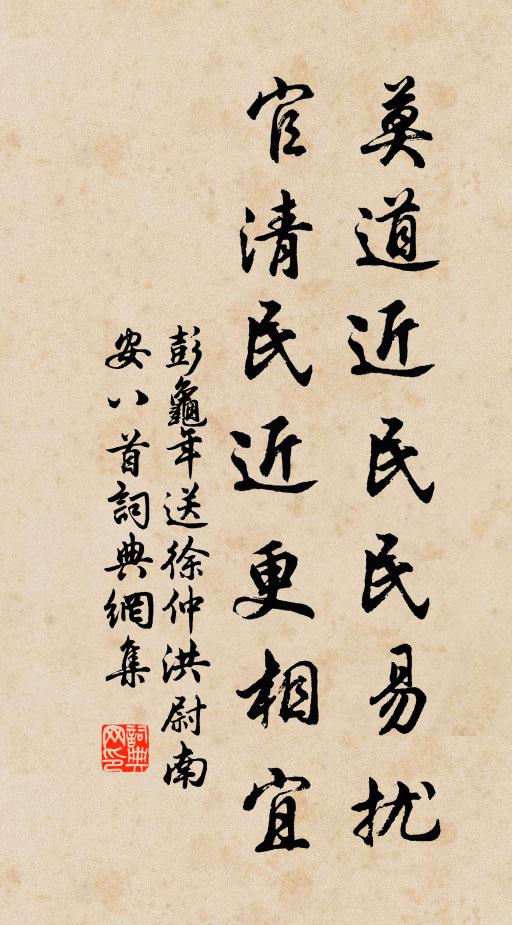 莫道近民民易扰
官清民近更相宜
彭龜年送徐仲洪尉南
安八首詞典網集
詞典网印